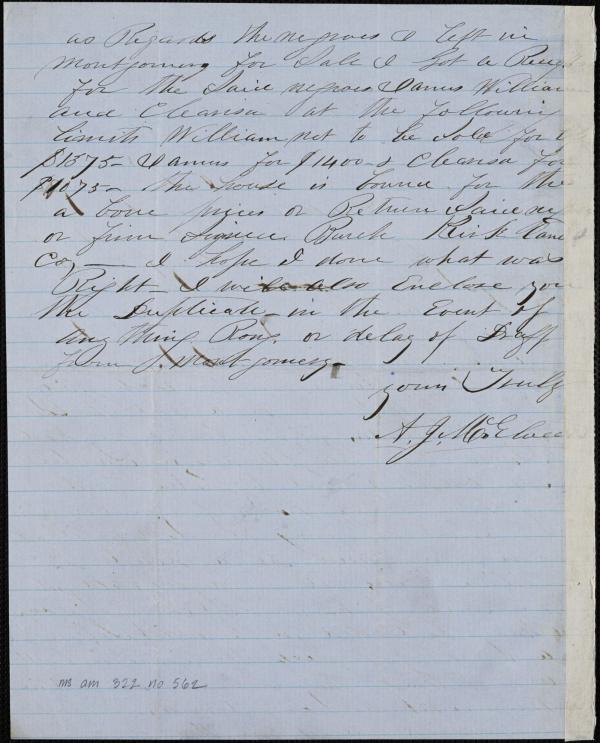 as Regards the negroes I left in
Montgomery for Sale I Got a
for the Said negroes James William
and Cleansa at the following
Limits William not to be Sold for
$1375- James for $1400- & Cleansa for
$1075- the house is bound for the
a bove prices or Return Said
or firm Signed.
Co, — I hope I done what was
Right - I will also Enclose you
the Duplicate in the Event of
any thing Rong. or delay of Draff
from J. Montgomery-
yours Truly
A. J. McElvee
ms am 322 no 562